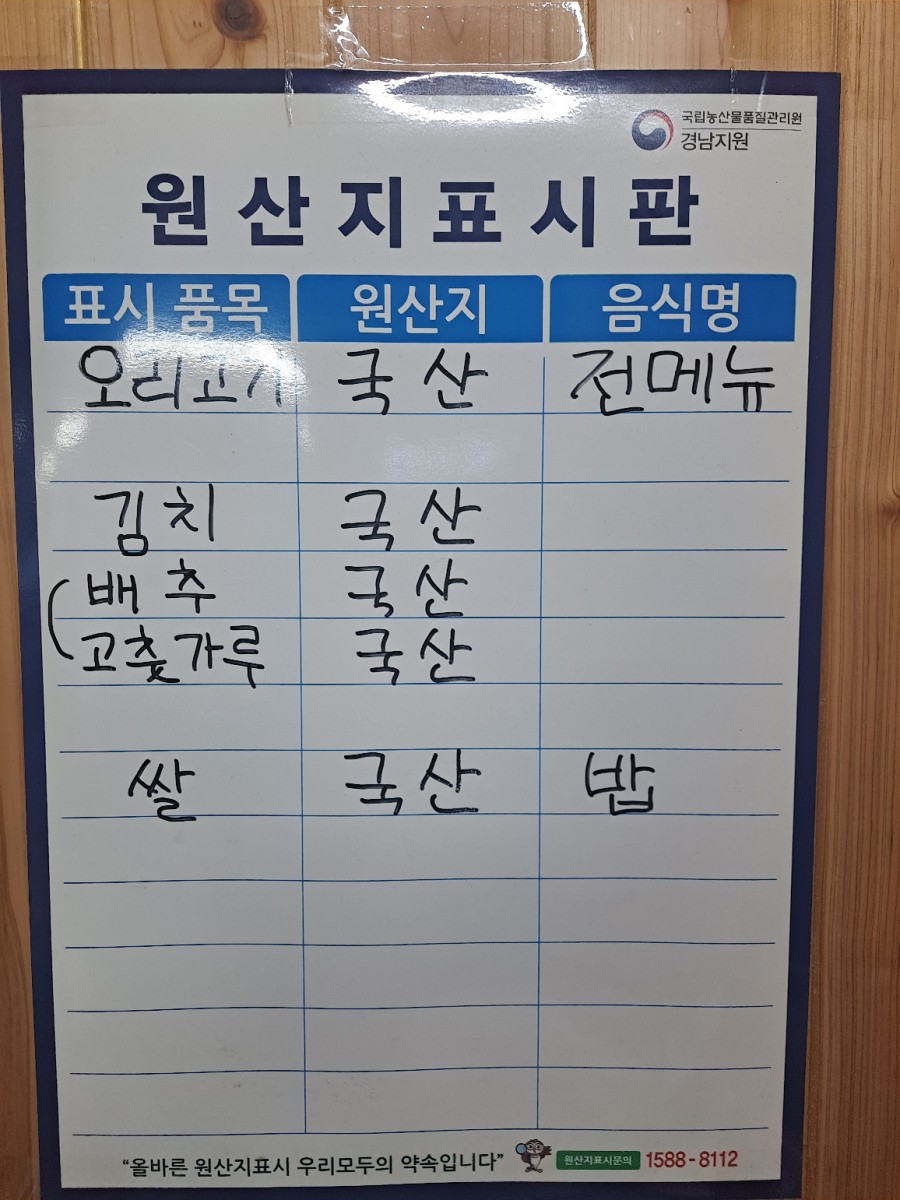 국립농산물품질관리원
경남지원
원산지표시판
표시 품목 원산지 음식명
오리고기 국산 전메뉴
김치 국산
배추 국산
고춧가루 국산
쌀 국산 밥
“올바른 원산지표시 우리모두의 약속입니다” 원산지표시문의 1588-8112